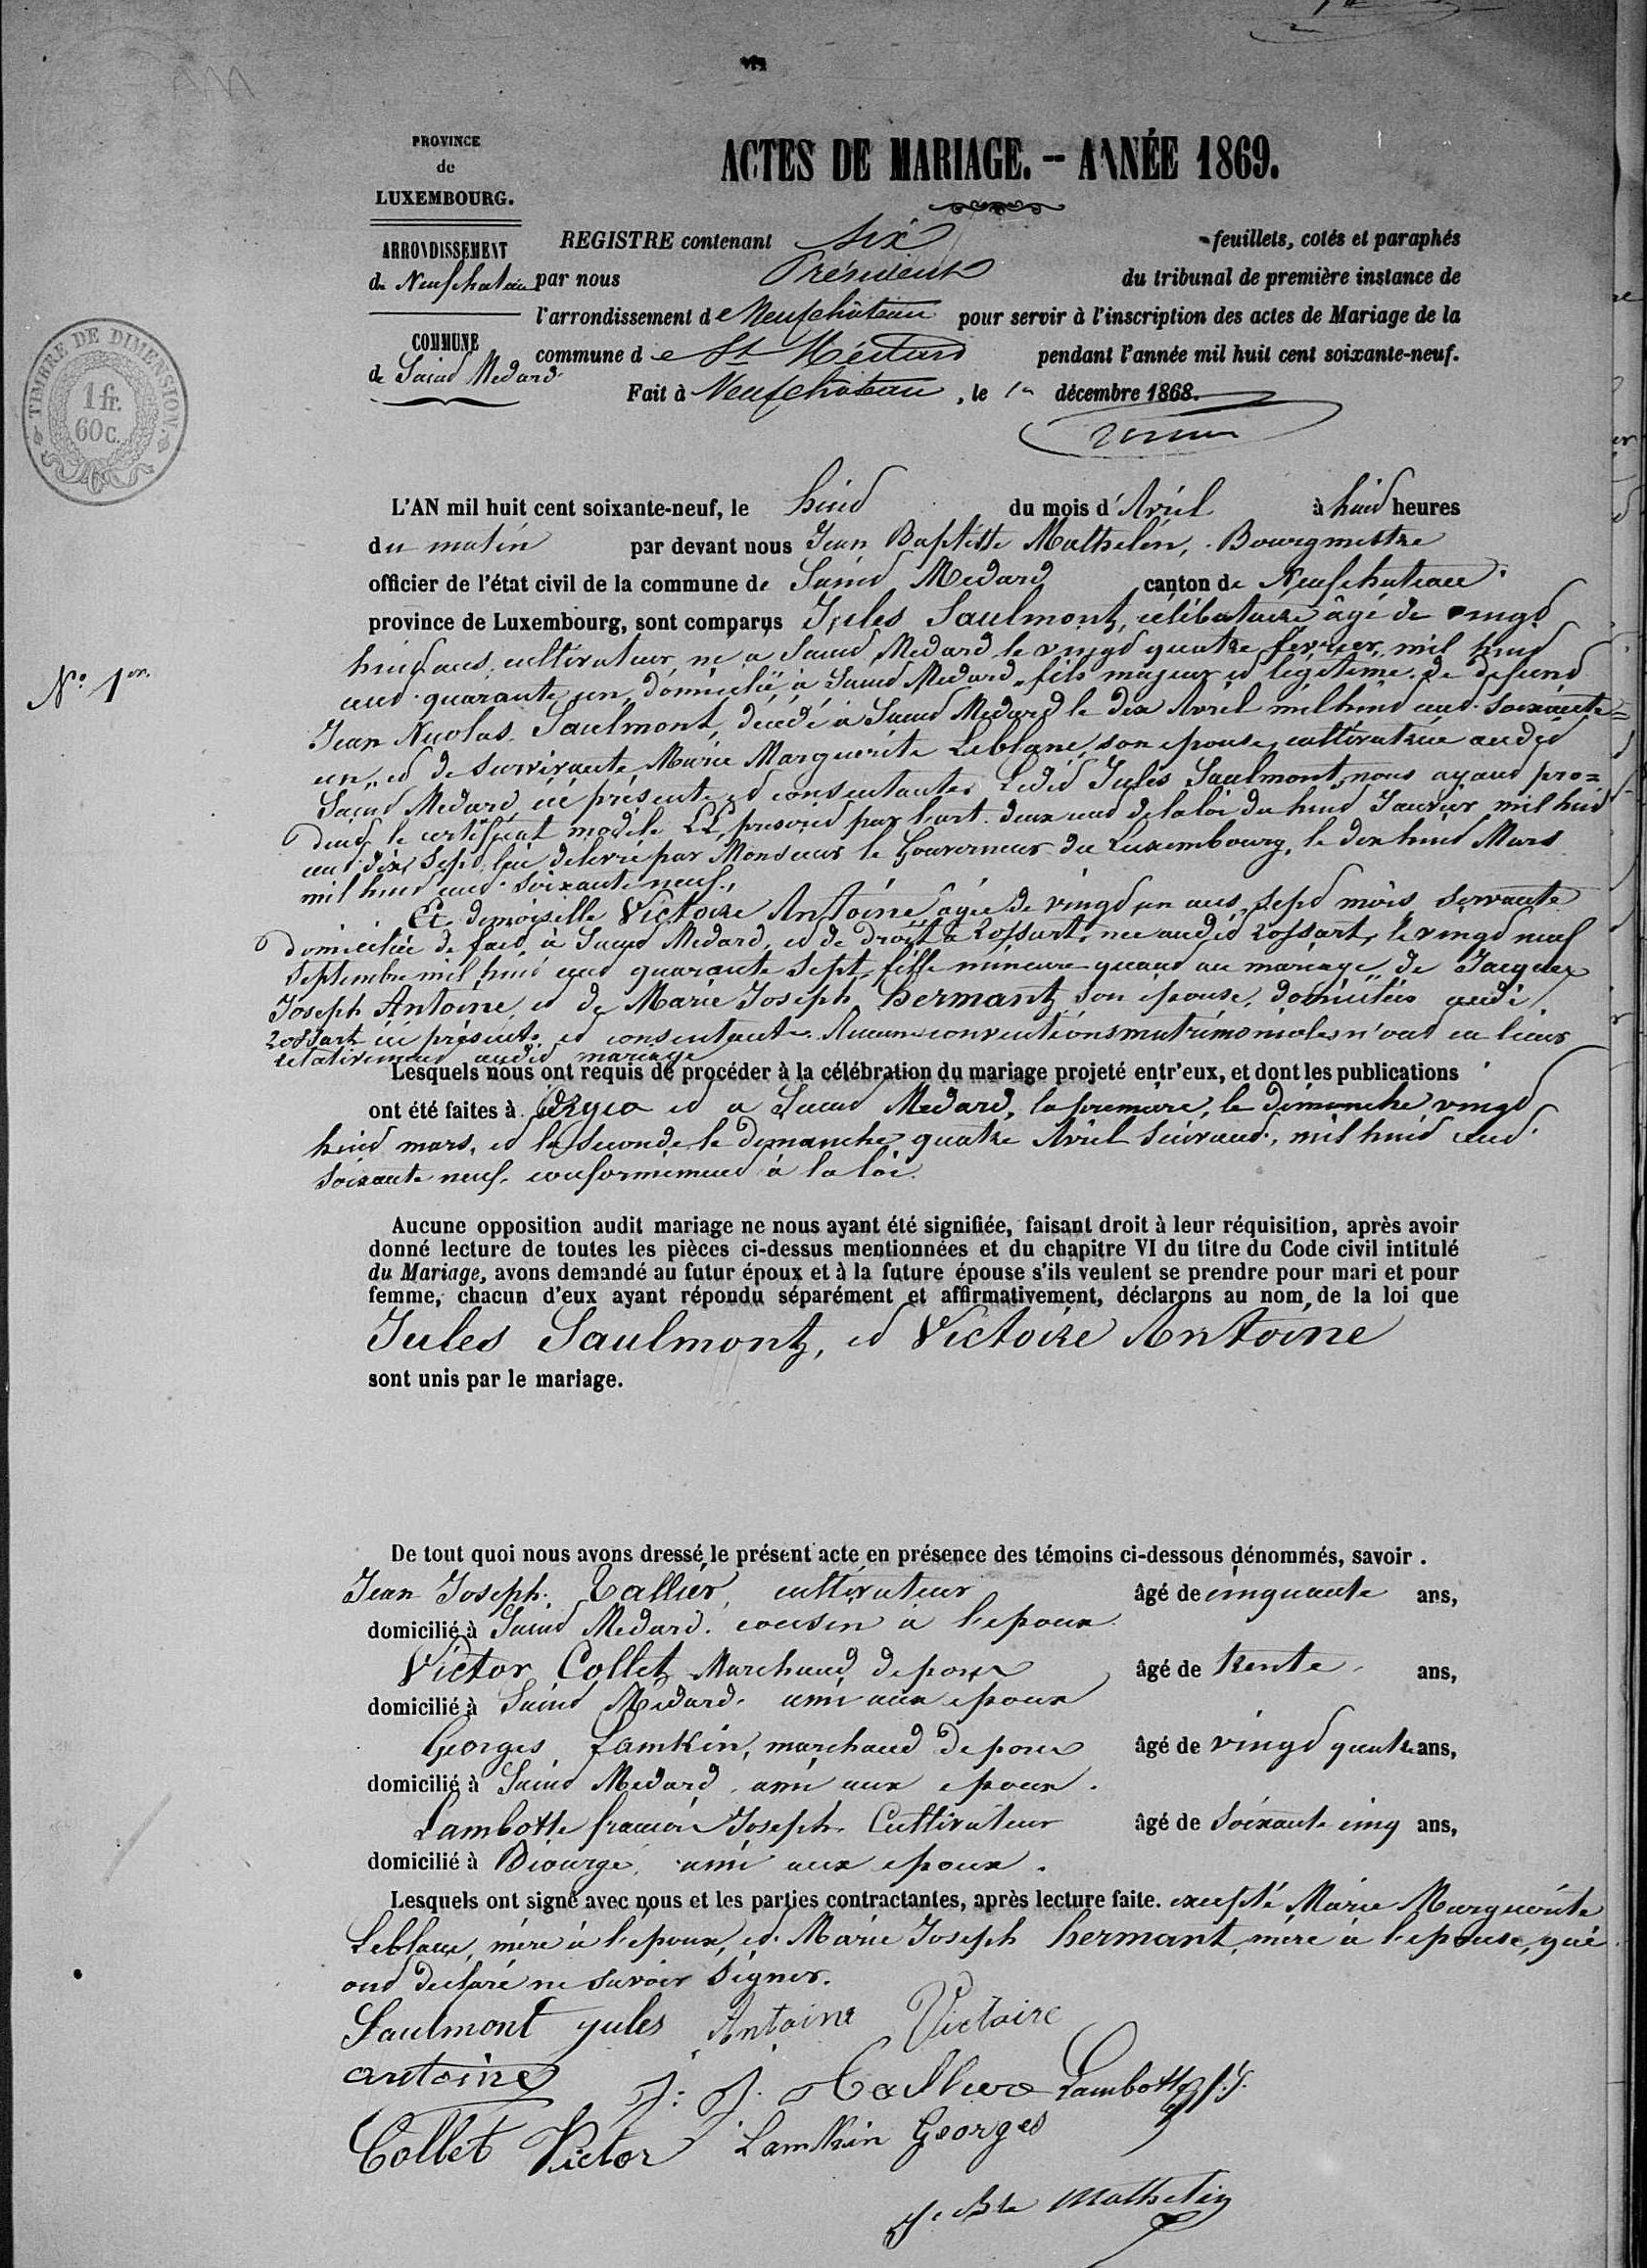 PROVINCE
de
LUXEMBOURG.
ARRONDISSEMENT
de Neufchateau
COMMUNE
de Saint Medard
TIMBRE DE DIMENSION.
1 fr.
60 c.
ACTES DE MARIAGE. — ANNÉE 1869.
REGISTRE contenant six feuillets, cotés et paraphés
par nous Président du tribunal de première instance de
l'arrondissement de Neufchâteau pour servir à l'inscription des actes de Mariage de la
commune de St Médard pendant l'année mil huit cent soixante-neuf.
Fait à Neufchâteau, le 1er décembre 1868.
N° 1er
L'AN mil huit cent soixante-neuf, le huit du mois d'Avril à huit heures
du matin par devant nous Jean Baptiste Mathelin, Bourgmestre
officier de l'état civil de la commune de Saint Medard canton de Neufchateau
province de Luxembourg, sont comparus Jules Saulmont, célibataire âgé de vingt
huit ans, cultivateur, né a Saint Medard le vingt quatre février mil huit
cent quarante un, domicilié à Saint Medard, fils majeur et légitime de defunt
Jean Nicolas Saulmont, décédé à Saint Medard le dix Avril mil huit cent soixante=
un, et de survivante Marie Marguerite Leblanc, son epouse, cultivatrice audit
Saint Medard, ici présente et consentante. Ledit Jules Saulmont, nous ayant pro=
duit le certificat modèle LL, prescrit par l'art. deux cent de la loi du huit Janvier mil huit
cent dix sept, lui délivré par Monsieur le Gouverneur du Luxembourg, le dix huit Mars
mil huit cent soixante neuf.,
Et demoiselle Victoire Antoine âgée de vingt un ans, sept mois servante
domiciliée de fait à Saint Medard, et de droit à Rossart, née audit Rossart, le vingt neuf
septembre mil huit cent quarante sept, fille mineure quant au mariage, de Jacques
Joseph Antoine, et de Marie Joseph hermant, son épouse, domiciliés audit
Rossart ici présents et consentants. Aucunes conventions matrimoniales n'ont eu lieux
relativement audit mariage
Lesquels nous ont requis de procéder à la célébration du mariage projeté entr'eux, et dont les publications
ont été faites à Orgeo et a Saint Medard, la première, le dimanche vingt
huit mars, et la seconde le dimanche quatre Avril suivant, mil huit cent
soixante neuf. conformément à la loi.
Aucune opposition audit mariage ne nous ayant été signifiée, faisant droit à leur réquisition, après avoir
donné lecture de toutes les pièces ci-dessus mentionnées et du chapitre VI du titre du Code civil intitulé
du Mariage, avons demandé au futur époux et à la future épouse s'ils veulent se prendre pour mari et pour
femme, chacun d'eux ayant répondu séparément et affirmativement, déclarons au nom de la loi que
Jules Saulmont, et Victoire Antoine
sont unis par le mariage.
De tout quoi nous avons dressé le présent acte en présence des témoins ci-dessous dénommés, savoir.
Jean Joseph Tallier, cultivateur âgé de cinquante ans,
domicilié à Saint Medard. cousin à l'epoux
Victor Collet Marchand de porcs âgé de trente ans,
domicilié à Saint Médard. ami aux epoux
Georges Lamkin, marchand de porcs âgé de vingt quatre ans,
domicilié à Saint Medard, ami aux epoux.
Lambotte francois Joseph Cultivateur âgé de soixante cinq ans,
domicilié à Biourge, ami aux epoux.
Lesquels ont signé avec nous et les parties contractantes, après lecture faite. excepté Marie Marguerite
Leblanc, mère à l'époux, et Marie Joseph hermant, mère à l'epouse, qui
ont déclaré ne savoir signer.
Saulmont jules Antoine Victoire
antoine J. J. Lambotte f. J.
Collet Victor Lamkin Georges
J. Bte Mathelin